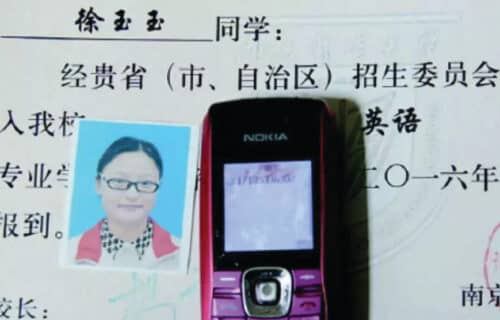 徐玉玉 同学：
经贵省（市、自治区）招生委员会
入我校 英语
专业学 二〇一六年
报到。
NOKIA
校长： 南京